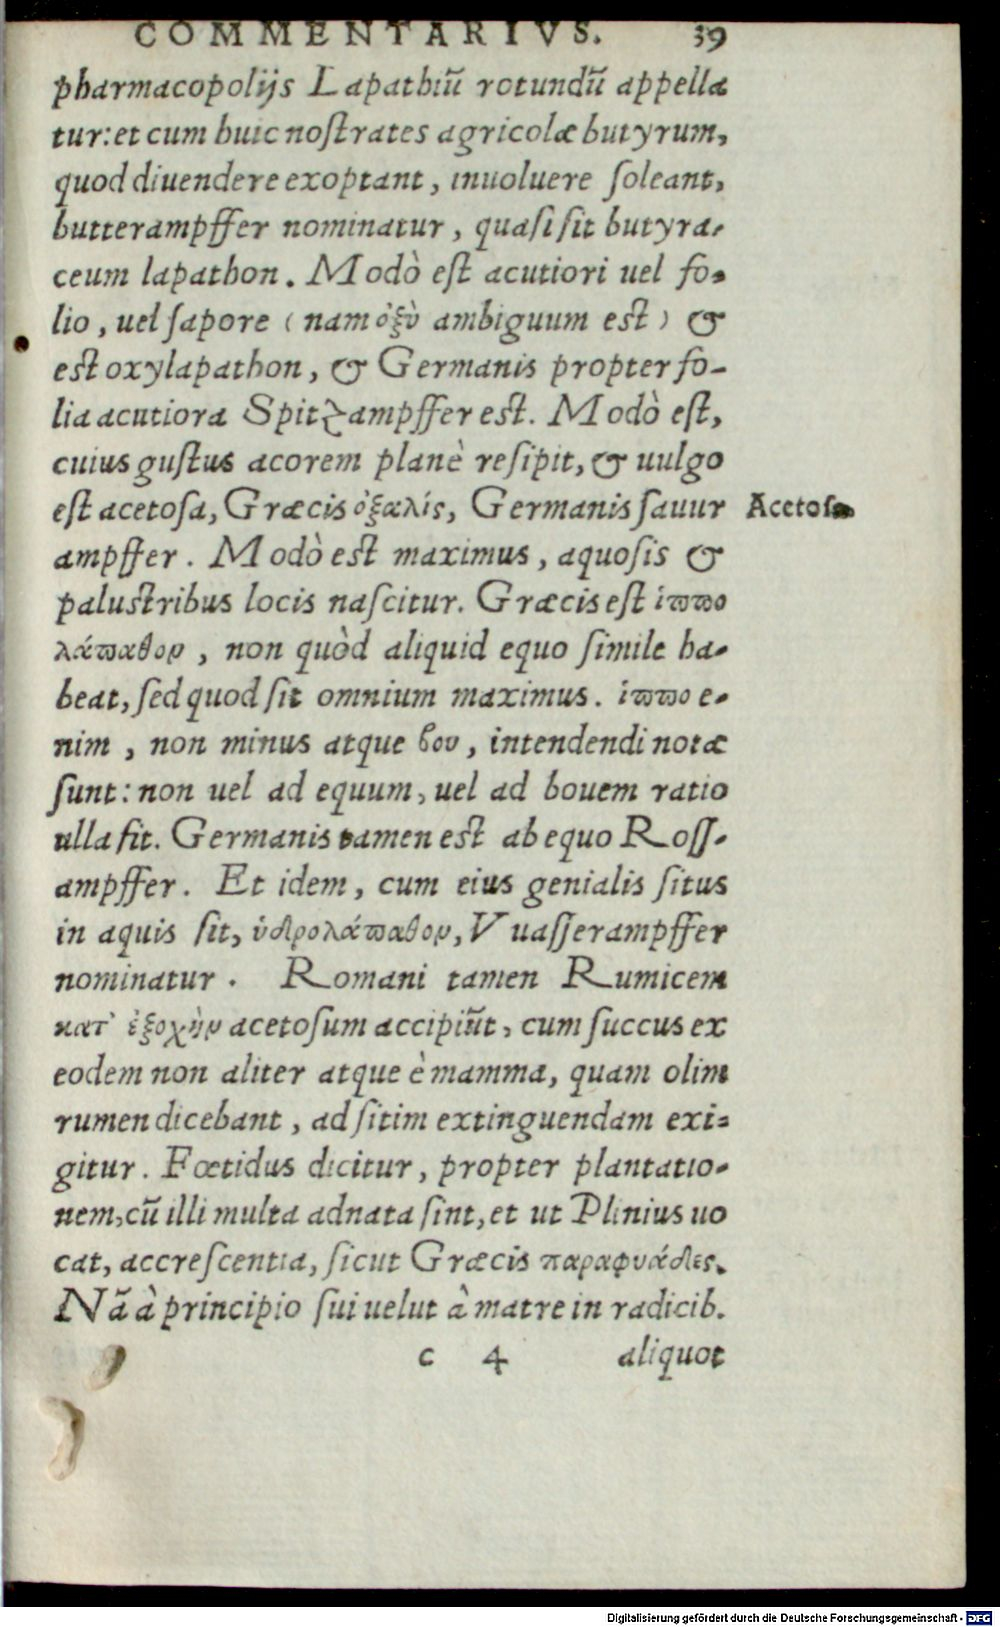 COMMENTARIVS. 39
pharmacopolijs Lapathiũ rotundũ appella
tur: et cum huic noſtrates agricolæ butyrum,
quod diuendere exoptant, inuoluere ſoleant,
butterampffer nominatur, quaſi ſit butyra-
ceum lapathon. Modò eſt acutiori uel fo-
lio, uel ſapore (nam ὀξὺ ambiguum eſt) &
eſt oxylapathon, & Germanis propter fo-
lia acutiora Spitzampffer eſt. Modò eſt,
cuius guſtus acorem planè reſipit, & uulgo
eſt acetoſa, Græcis ὀξαλίς, Germanis ſauur
Acetoſa
ampffer. Modò eſt maximus, aquoſis &
paluſtribus locis naſcitur. Græcis eſt ἱππο
λάπαθον, non quòd aliquid equo ſimile ha-
beat, ſed quod ſit omnium maximus. ἱππο e-
nim, non minus atque βου, intendendi notæ
ſunt: non uel ad equum, uel ad bouem ratio
ulla fit. Germanis tamen eſt ab equo Roſſ-
ampffer. Et idem, cum eius genialis ſitus
in aquis ſit, ὑδρολάπαθον, Vuaſſerampffer
nominatur. Romani tamen Rumicem
κατ' ἐξοχὴν acetoſum accipiũt, cum ſuccus ex
eodem non aliter atque è mamma, quam olim
rumen dicebant, ad ſitim extinguendam exi-
gitur. Fœtidus dicitur, propter plantatio-
nem, cũ illi multa adnata ſint, et ut Plinius uo
cat, accreſcentia, ſicut Græcis παραφυάδες.
Nã à principio ſui uelut à matre in radicib.
c 4 aliquot
Digitalisierung gefördert durch die Deutsche Forschungsgemeinschaft - DFG